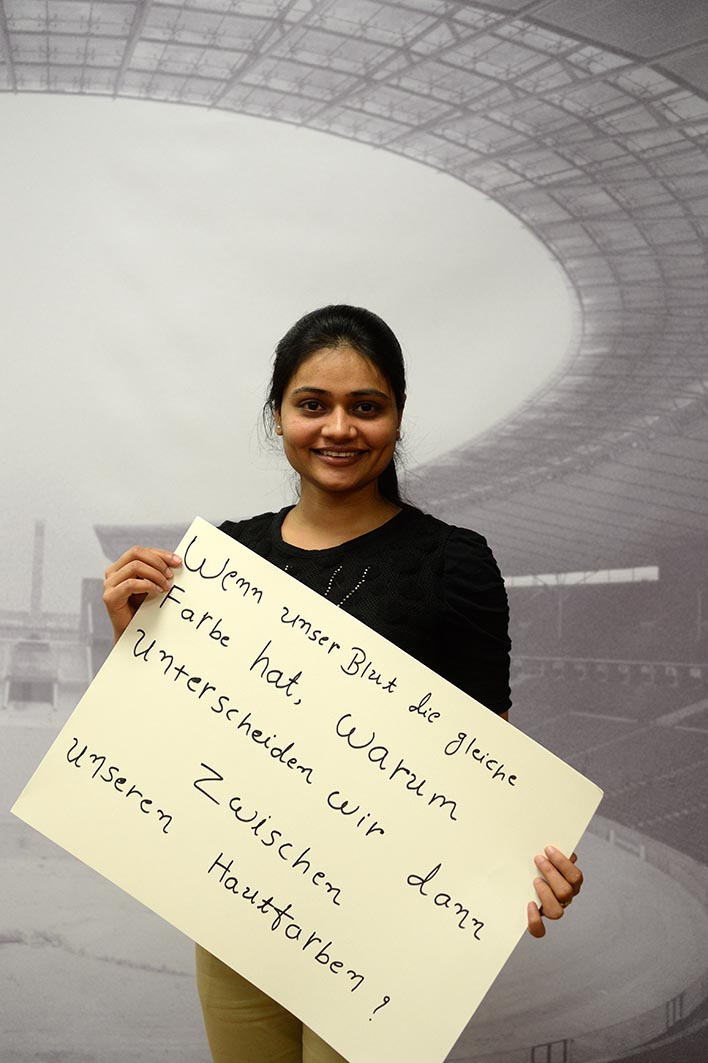 Wenn unser Blut die gleiche
Farbe hat, Warum
Unterscheiden wir dann
Zwischen
unseren Hautfarben?